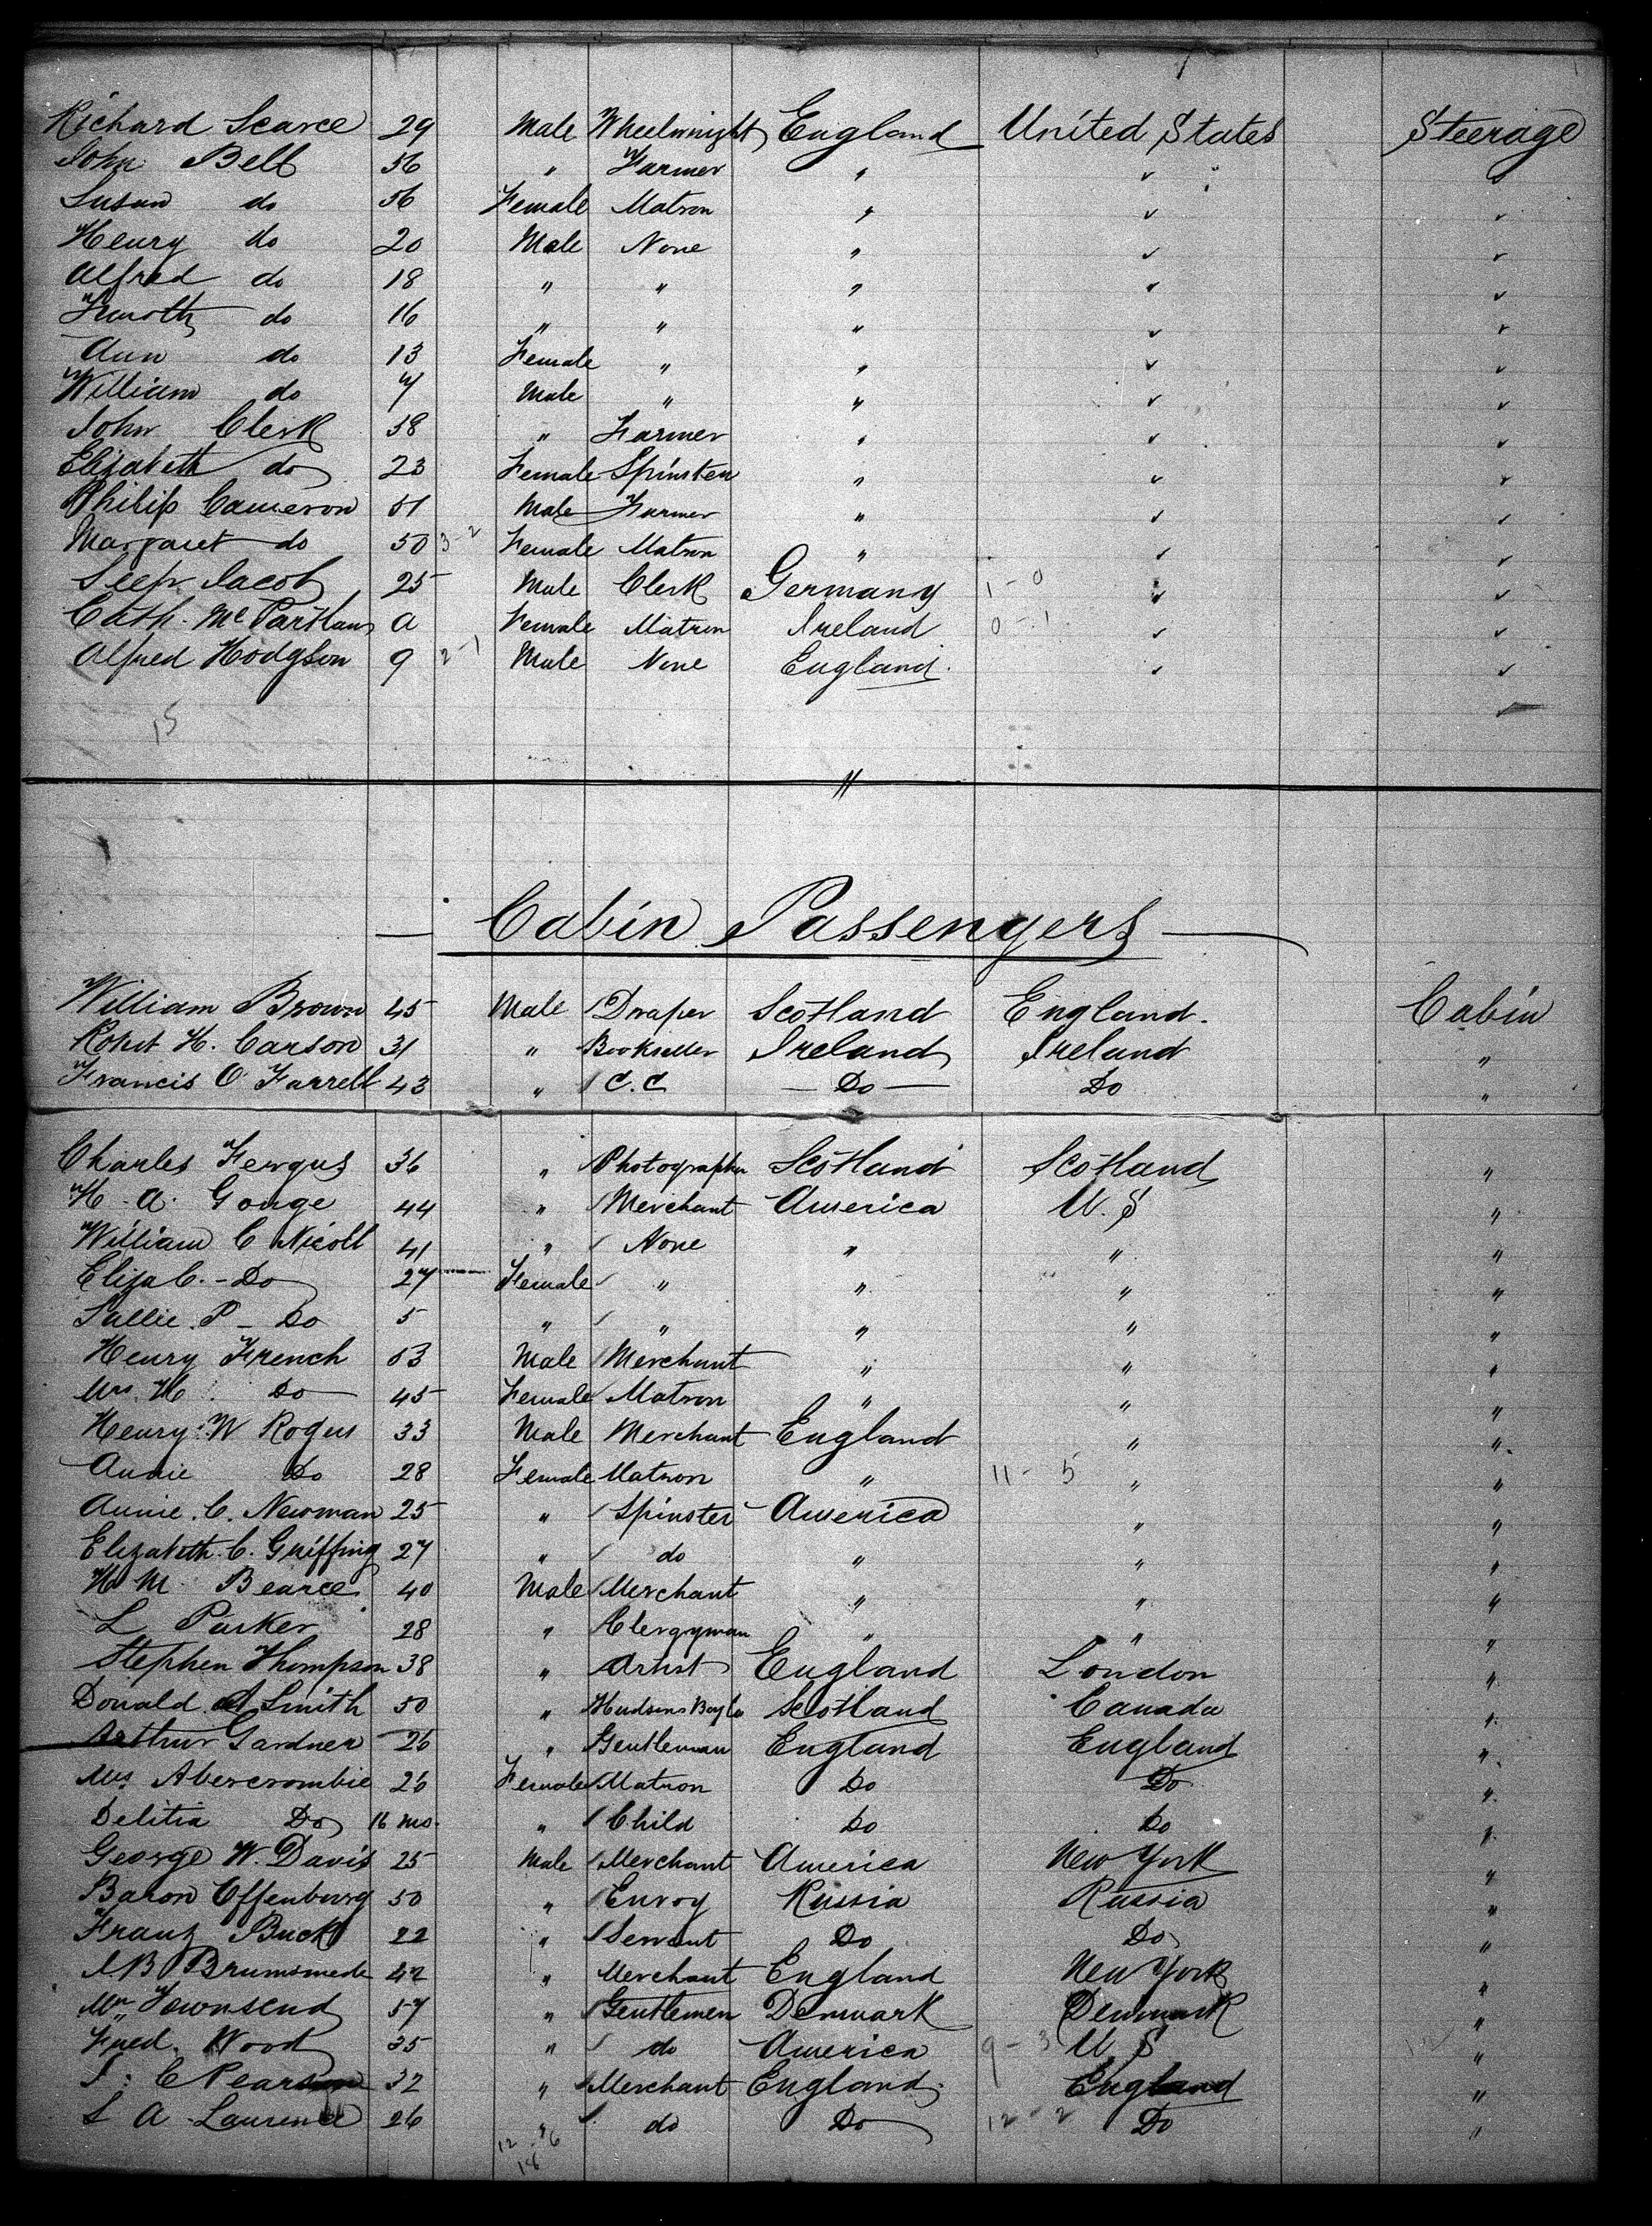 Richard Searce 29 Male Wheelwright England United States Steerage
John Bell 56 " Farmer " " "
Susan do 56 Female Matron " " "
Henry do 20 Male None " " "
Alfred do 18 " " " " "
do 16 " " " " "
Ann do 13 Female " " " "
William do 7 Male " " " "
John Clerk 58 " Farmer " " "
Elizabeth do 23 Female Spinster " " "
Philip Cameron 51 Male Farmer " " "
Margaret do 50 3-2 Female Matron " " "
Jacob 25 Male Clerk Germany 1-0 " "
Cath. McPartlan a Female Matron Ireland 0-1 " "
Alfred Hodgson 9 2-1 Male None England " "
15
Cabin Passengers
William Brown 45 Male Draper Scotland England. Cabin
Robt H. Carson 31 " Bookseller Ireland Ireland "
Francis O Farrell 43 " C.C — Do — Do "
Charles Fergus 36 " Photographer Scotland Scotland "
H. A. Gouge 44 " Merchant America U.S "
William C Nicoll 41 " None " " "
Eliza C. - Do 27 Female " " " "
Sallie. P - Do 5 " " " " "
Henry French 53 Male Merchant " " "
Mrs. H. Do 45 Female Matron " " "
Henry W Rogers 33 Male Merchant England " "
Annie Do 28 Female Matron " 11-5 " "
Annie. C. Newman 25 " Spinster America " "
Elizabeth. C. Griffing 27 " do " " "
H. M. Bearce 40 Male Merchant " " "
L Parker 28 " Clergyman " " "
Stephen Thompson 38 " Artist England London "
Donald A Smith 50 " Hudsons Bay Co Scotland Canada "
Arthur Gardner 26 " Gentleman England England "
Mrs. Abercrombie 26 Female Matron Do Do "
Delitia Do 16 mo. " Child Do Do "
George W. Davis 25 Male Merchant America New York "
Baron Offenburg 50 " Envoy Russia Russia "
Franz Buck 22 " Servant Do Do "
42 " Merchant England New York "
Mr Townsend 57 " Gentlemen Denmark Denmark "
Fred. Wood 35 " do America 9-3 U S "
C Pearson 32 " Merchant England England "
S A Laurence 26 " do Do 12-2 Do "
18